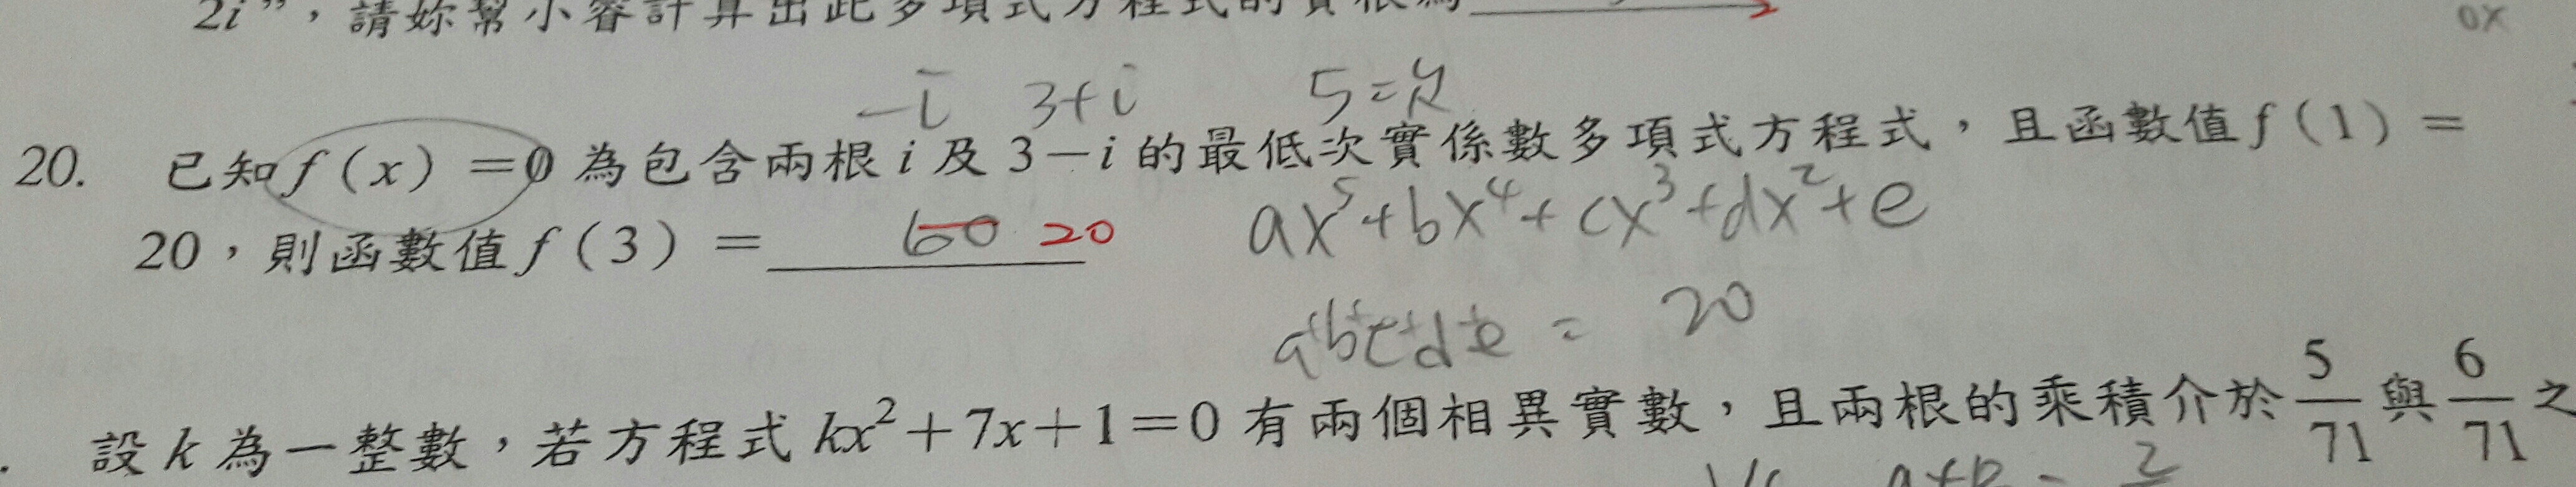 2i",請妳幫小睿計算出此多項式方程式的實根為
0x
-i 3+i 5=次
20. 已知f(x)=0為包含兩根i及3-i的最低次實係數多項式方程式,且函數值f(1)=
20,則函數值f(3)= 60 20
ax⁵+bx⁴+cx³+dx²+e
a+b+c+d+e = 20
設k為一整數,若方程式kx²+7x+1=0有兩個相異實數,且兩根的乘積介於5/71與6/71之